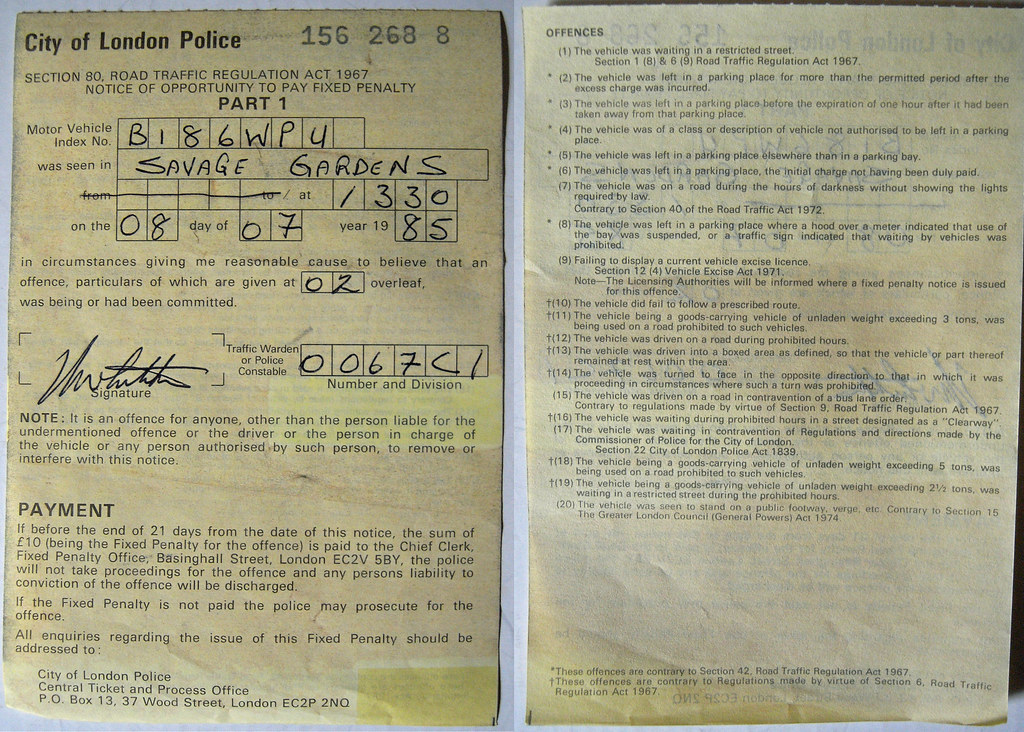 City of London Police 156 268 8
SECTION 80, ROAD TRAFFIC REGULATION ACT 1967
NOTICE OF OPPORTUNITY TO PAY FIXED PENALTY
PART 1
Motor Vehicle
Index No. B186WPU
was seen in SAVAGE GARDENS
from to / at 1330
on the 08 day of 07 year 19 85
in circumstances giving me reasonable cause to believe that an
offence, particulars of which are given at 02 overleaf,
was being or had been committed.
Traffic Warden
or Police
Constable 0067C1
Signature
Number and Division
NOTE: It is an offence for anyone, other than the person liable for the
undermentioned offence or the driver or the person in charge of
the vehicle or any person authorised by such person, to remove or
interfere with this notice.
PAYMENT
If before the end of 21 days from the date of this notice, the sum of
£10 (being the Fixed Penalty for the offence) is paid to the Chief Clerk,
Fixed Penalty Office, Basinghall Street, London EC2V 5BY, the police
will not take proceedings for the offence and any persons liability to
conviction of the offence will be discharged.
If the Fixed Penalty is not paid the police may prosecute for the
offence.
All enquiries regarding the issue of this Fixed Penalty should be
addressed to:
City of London Police
Central Ticket and Process Office
P.O. Box 13, 37 Wood Street, London EC2P 2NQ
OFFENCES
(1) The vehicle was waiting in a restricted street.
Section 1 (8) & 6 (9) Road Traffic Regulation Act 1967.
* (2) The vehicle was left in a parking place for more than the permitted period after the
excess charge was incurred.
* (3) The vehicle was left in a parking place before the expiration of one hour after it had been
taken away from that parking place.
* (4) The vehicle was of a class or description of vehicle not authorised to be left in a parking
place.
* (5) The vehicle was left in a parking place elsewhere than in a parking bay.
* (6) The vehicle was left in a parking place, the initial charge not having been duly paid.
(7) The vehicle was on a road during the hours of darkness without showing the lights
required by law.
Contrary to Section 40 of the Road Traffic Act 1972.
* (8) The vehicle was left in a parking place where a hood over a meter indicated that use of
the bay was suspended, or a traffic sign indicated that waiting by vehicles was
prohibited.
(9) Failing to display a current vehicle excise licence.
Section 12 (4) Vehicle Excise Act 1971.
Note—The Licensing Authorities will be informed where a fixed penalty notice is issued
for this offence.
†(10) The vehicle did fail to follow a prescribed route.
†(11) The vehicle being a goods-carrying vehicle of unladen weight exceeding 3 tons, was
being used on a road prohibited to such vehicles.
†(12) The vehicle was driven on a road during prohibited hours.
†(13) The vehicle was driven into a boxed area as defined, so that the vehicle or part thereof
remained at rest within the area
†(14) The vehicle was turned to face in the opposite direction to that in which it was
proceeding in circumstances where such a turn was prohibited.
(15) The vehicle was driven on a road in contravention of a bus lane order.
Contrary to regulations made by virtue of Section 9, Road Traffic Regulation Act 1967.
†(16) The vehicle was waiting during prohibited hours in a street designated as a "Clearway".
(17) The vehicle was waiting in contravention of Regulations and directions made by the
Commissioner of Police for the City of London.
Section 22 City of London Police Act 1839.
†(18) The vehicle being a goods-carrying vehicle of unladen weight exceeding 5 tons, was
being used on a road prohibited to such vehicles.
†(19) The vehicle being a goods-carrying vehicle of unladen weight exceeding 2½ tons, was
waiting in a restricted street during the prohibited hours.
(20) The vehicle was seen to stand on a public footway, verge, etc. Contrary to Section 15
The Greater London Council (General Powers) Act 1974
*These offences are contrary to Section 42, Road Traffic Regulation Act 1967.
†These offences are contrary to Regulations made by virtue of Section 6, Road Traffic
Regulation Act 1967.